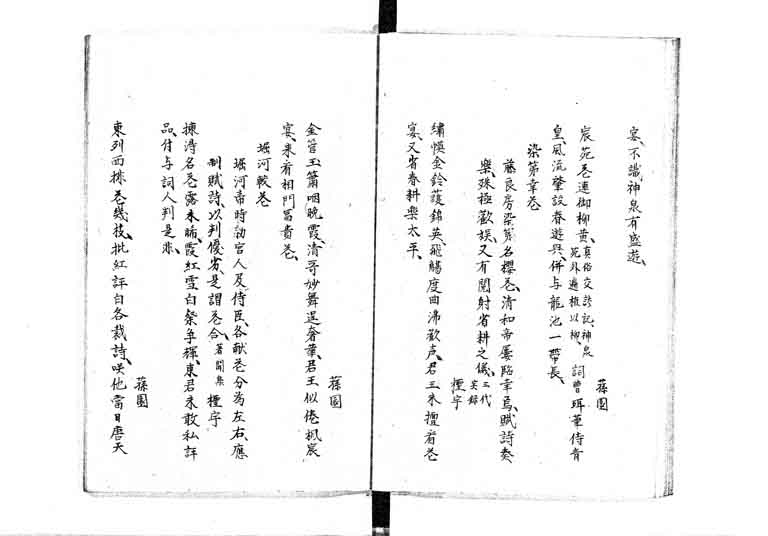 宴、不識神泉有盛遊、
蓀園
宸苑花連御柳黄、真俗交談記、神泉苑外遍植以柳、詞曹珥筆侍青
皇、風流肇設春遊興、併与龍池一帶長、
染第幸花
藤良房染第名櫻花、清和帝屡臨幸焉、賦詩奏
樂、殊極歡娯、又有閲射省耕之儀、三代実録
檉宇
繡幔金鈴護錦英、飛觴度曲沸歡声、君王不擅看花
宴、又省春耕樂太平、
蓀園
金管玉簫咽晩霞、清哥妙舞逞奢華、君王似倦楓宸
宴、来看相門冨貴花、
堀河較花
堀河帝時勅宮人及侍臣、各献花分為左右、應
制賦詩以判優劣、是謂花合、著聞集 檉宇
揀得名花露未晞、霞紅雪白粲争輝、東君未敢私評
品、付与詞人判是非、
蓀園
東列西排花幾枝、批紅評白各裁詩、咲他當日唐天